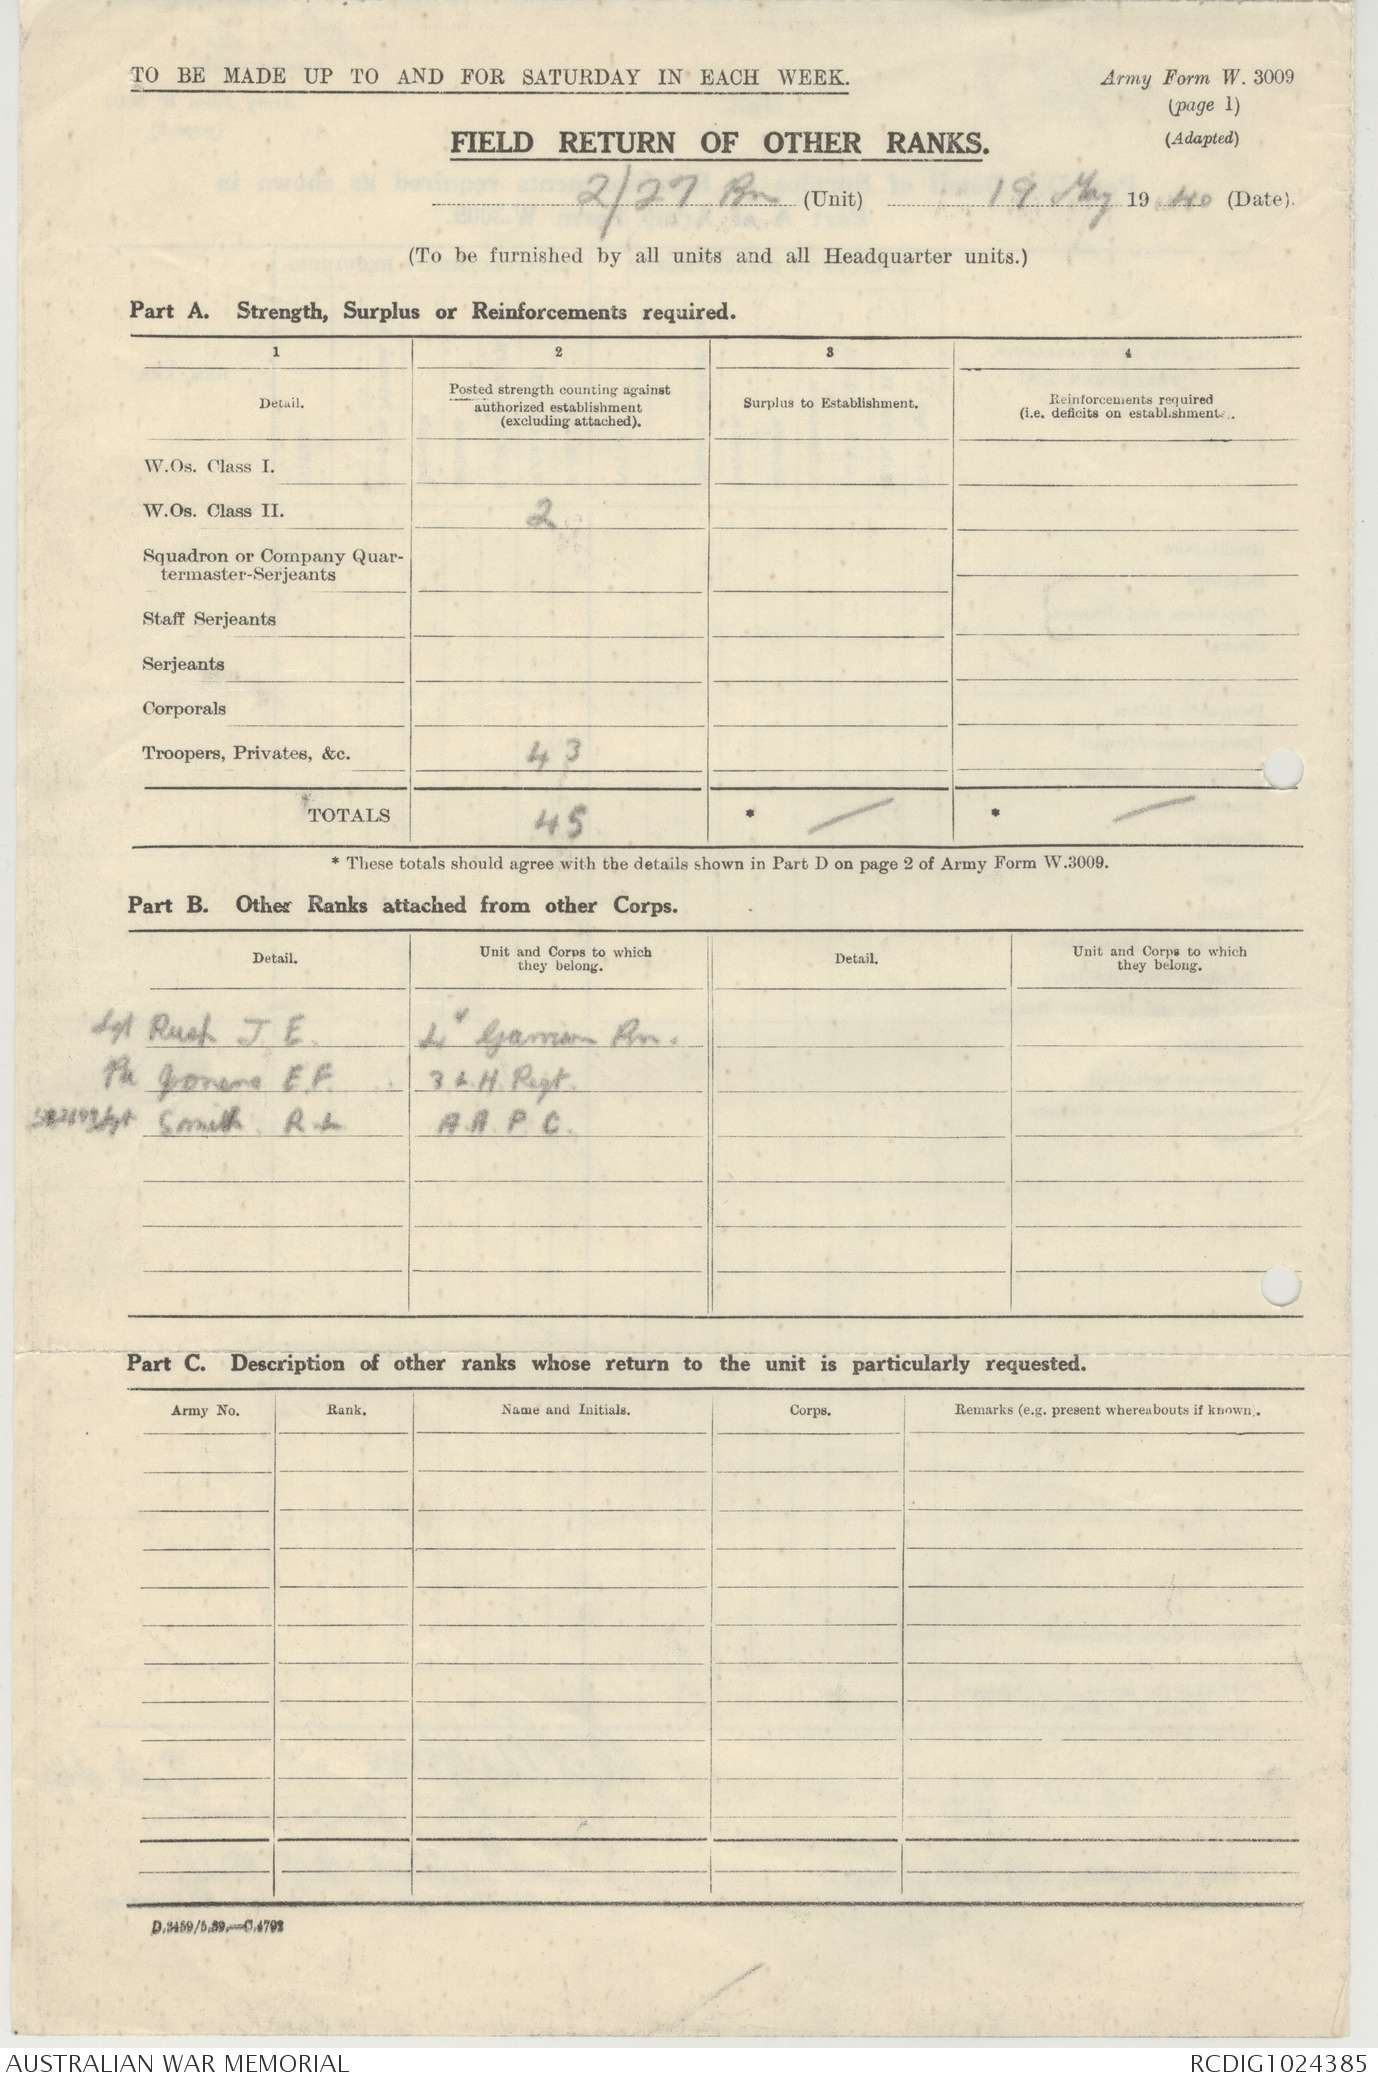 TO BE MADE UP TO AND FOR SATURDAY IN EACH WEEK.
Army Form W. 3009
(page 1)
(Adapted)
FIELD RETURN OF OTHER RANKS.
2/27 Bn (Unit) 19 May 1940 (Date).
(To be furnished by all units and all Headquarter units.)
Part A. Strength, Surplus or Reinforcements required.
1 2 3 4
Detail.
Posted strength counting against authorized establishment (excluding attached).
Surplus to Establishment.
Reinforcements required (i.e. deficits on establishment).
W.Os. Class I.
W.Os. Class II. 2
Squadron or Company Quar-
termaster-Serjeants
Staff Serjeants
Serjeants
Corporals
Troopers, Privates, &c. 43
TOTALS 45 * / * /
* These totals should agree with the details shown in Part D on page 2 of Army Form W.3009.
Part B. Other Ranks attached from other Corps.
Detail.
Unit and Corps to which they belong.
Detail.
Unit and Corps to which they belong.
Sgt Rush J. E. Garrison Bn.
E.F. 3 L.H. Regt.
Sgt Smith R.L A.A.P.C.
Part C. Description of other ranks whose return to the unit is particularly requested.
Army No. Rank. Name and Initials. Corps. Remarks (e.g. present whereabouts if known).
D.3459/5.39.—C.4792
AUSTRALIAN WAR MEMORIAL
RCDIG1024385